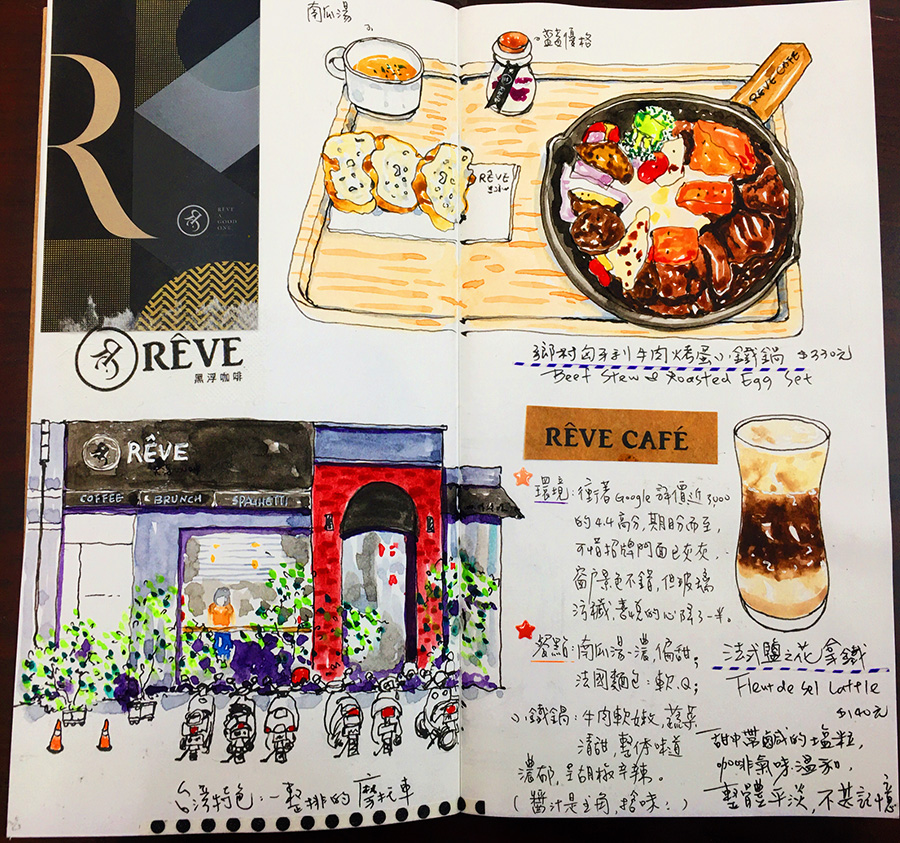 R
RÊVE
A
GOOD
ONE
RÊVE
黑浮咖啡
RÊVE
COFFEE
BRUNCH
SPAGHETTI
台灣特色:一整排的摩托車
南瓜湯
藍莓優格
RÊVE
RÊVE
RÊVE CAFE
鄉村匈牙利牛肉烤蛋小鐵鍋 $330元
Beef Stew & Roasted Egg Set
RÊVE CAFÉ
環境:衝著Google評價近3,000
的4.4高分,期盼而至,
可惜招牌門面已灰灰,
窗戶景色不錯,但玻璃
污穢,喜悅的心降了一半。
餐點:南瓜湯-濃,偏甜;
法國麵包:軟,Q;
小鐵鍋:牛肉軟嫩,蔬菜
清甜,整体味道
濃郁,呈胡椒辛辣。
(醬汁是主角,搶味:)
法式鹽之花拿鐵
Fleur de sel Lattle
$140元
甜中帶鹹的塩粒,
咖啡氣味溫和,
整體平淡,不甚記憶